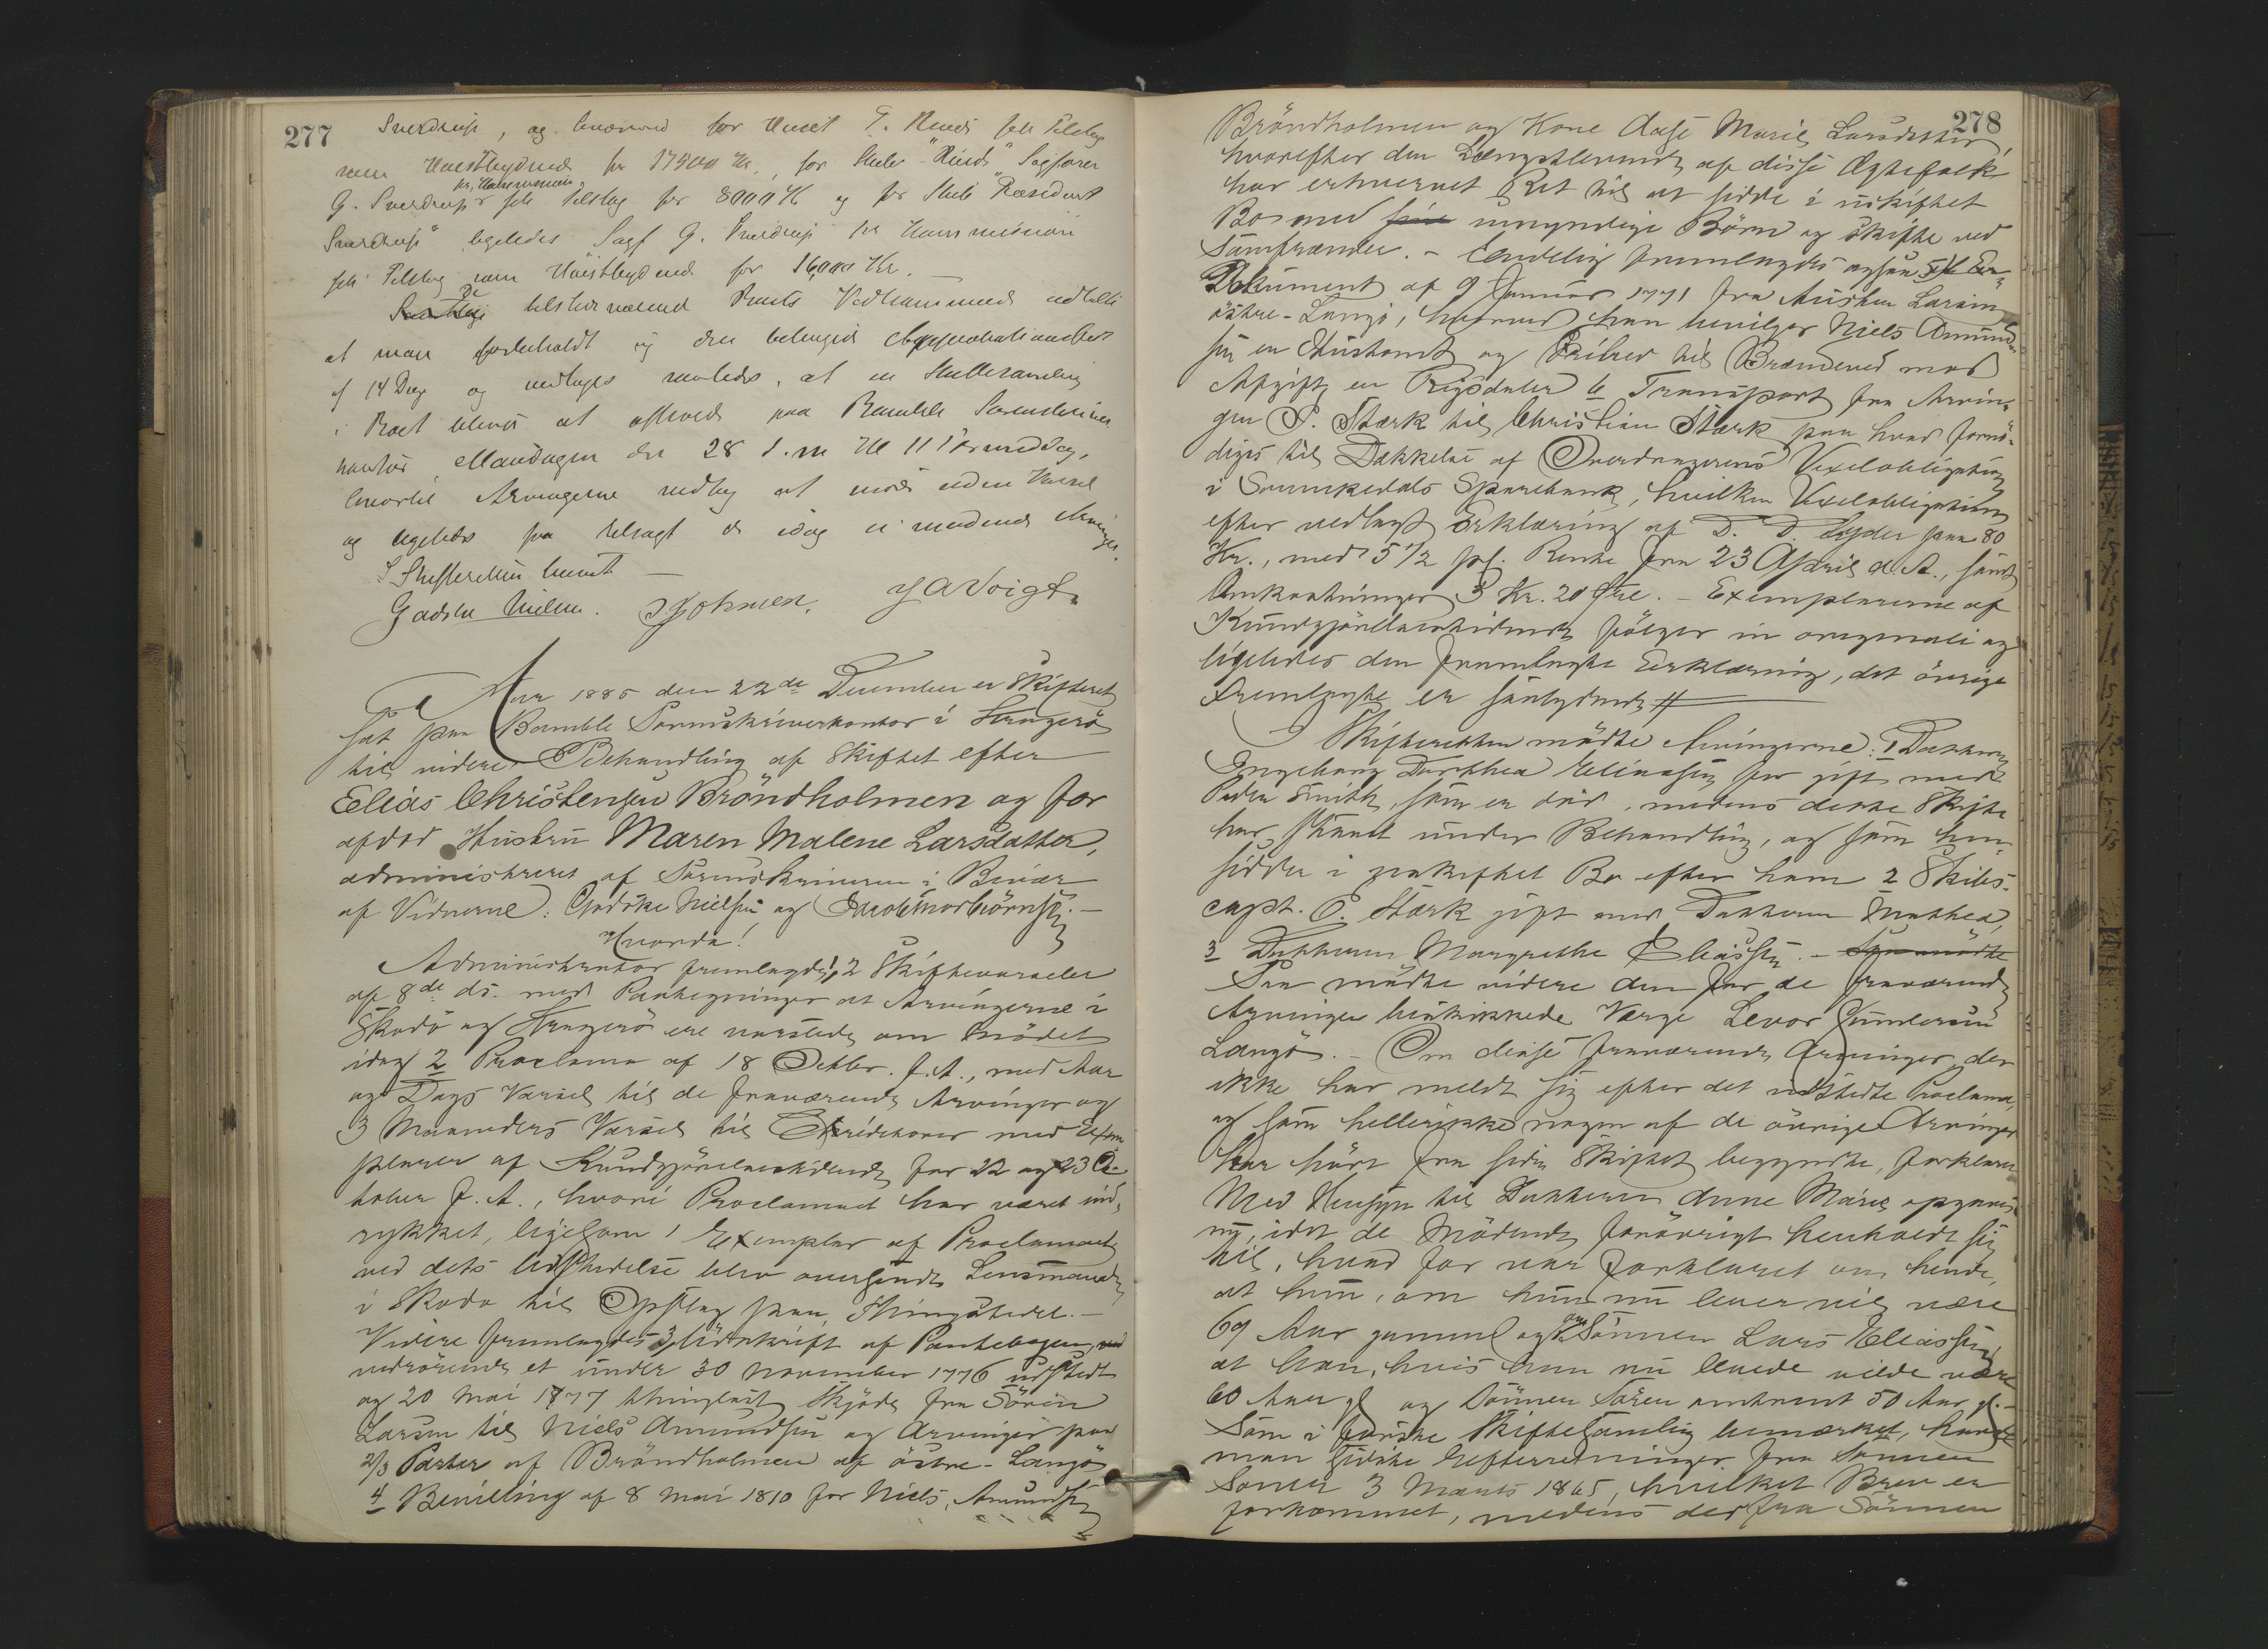 277
Sverdrup, og hvorved for Huset T. fik Tilslag
som Høistbydende for 17500 Kr., for Skib "Rued" Sagfører
pr. Kommission
G. Sverdrup fik Tilslag for 8000 Kr og for Skib "Præsident
Sverdrup" ligeledes Sagf G. Sverdrup pr Kommission
fik Tilslag som Høistbydende for 16,000 Kr. —
De tilstedeværende Vedkommende udtalte
at man forbeholdt sig den betingede Approbationsret
af 14 Dag og vedtoges saaledes, at en Skiftesamling
i Boet bliver at afholde paa Bamble Sorenskriver
kontor Mandagen den 28 d. m Kl 11 Formiddag,
hvortil Arvingerne vedtog at møde uden Varsel
og ligeledes faa tilsagt de idag ei mødende Arvinger.
Skifteretten hævet —
Gadske Nielsen. J A Voigt.
Aar 1885 den 22de December er Skifteret
sat paa Bamble Sorenskriverkontor i Kragerø
til videre Behandling af Skiftet efter
Elias Christensen Bröndholmen og for
afdød Hustru Maren Malene Larsdatter,
administreret af Sorenskriveren i Bivær
af Vidnerne: Gadske Nielsen og Jacob Thorbiörnsen. —
Hvorda!
Administrator fremlagde: 1, 2 Skiftevarseler
af 8de ds. med Paategninger at Arvingerne i
Skadø og Kragerø ere varslede om Mødet
idag 2 Proclama af 18 Octbr. f. A., med Aar
og Dags Varsel til de fraværende Arvinger og
3 Maaneders Varsel til Kreditorer med Exem
plarer af Kundgjörelsestidende for 22 og 23 Oc-
tober f. A., hvori Proclamaet har været ind,
rykket, ligesom 1 Exemplar af Proclamaet
ved dets Udstedelse blev oversendt Lensmanden
i Skadø til Opslag paa Thingstedet. —
Videre fremlagdes 3, Udskrift af Pantebogen
vedrörende et under 30 November 1776 udstedt
og 20 Mai 1777 thinglæst Skjöde fra Sören
Larsen til Niels Amundsen og Arvinger paa
2/3 Parter af Bröndholmen af östre-Langö
4 Bevilling af 8 Mai 1810 for Niels Amundsen
278
Bröndholmen og Kone Aase Marie Larsdatter,
hvorefter den Længstlevende af disse Ægtefolk
har erhvervet Ret til at sidde i uskiftet
Bo med sine umyndige Börn og skifte med
Samfrænder. — Endelig fremlagdes ogsaa 5,
Dokument af 9 Januar 1771 fra Aushen Larsen
östre-Langö, hvorved han bevilger Niels Amunds
sen en Hustomt og Frihed til Brændeved mod
Afgift en Rigsdaler 6 Transport fra Arvin-
gen P. Stærk til Christian Stærk paa hvad fornö-
diges til Dækkelse af Overdragerens Vexelobligation
i Sannikedals Sparebank, hvilken Vexelobligation
efter vedlagt Erklæring af D. D. lyder paa 80
Kr., med 5 1/2 pCt. Rente fra 23 April d. A., samt
Omkostninger 3 Kr. 20 Öre. — Exemplarerne af
Kundgjörelsestidende fölger in originali og
ligeledes den fremlagte Erklæring, det övrige
Fremlagte er saalydende #
I Skifteretten mödte Arvingerne: 1 Datteren
Ingeborg Dorthea Eliasen før gift med
Peder Smith, som er död, medens dette Skifte
har staaet under Behandling, og som hun
sidder i uskiftet Bo efter ham 2 Skibs-
capt. P. Stærk gift med Datteren Mathea,
3 Datteren Margrethe Eliassen. —
Saa mödte videre den for de fraværende
Arvinger beskikkede Værge Levor Gundersen
Langö. — Om disse fraværende Arvinger, der
ikke har meldt sig efter det udstedte Proclama,
og som hellerikke nogen af de övrige Arvinger
har hört fra siden Skiftet begyndte, forklares
med Hensyn til Datteren Anne Marie opgaves
nu, idet de Mödende forövrigt henholdt sig
til, hvad för var forklaret om hende,
at hun, om hun nu lever vil være
69 Aar gammel og om Sönnen Lars Eliassen
at han, hvis han nu levede vilde være
60 Aar gl og Sönnen Sören omtrent 50 Aar gl. —
Som i forrige Skiftesamling bemærket, havde
man sidste Efterretninger fra Sönnen
Sören 3 Marts 1865, hvilket Brev er
forkommet, medens der fra Sönnen